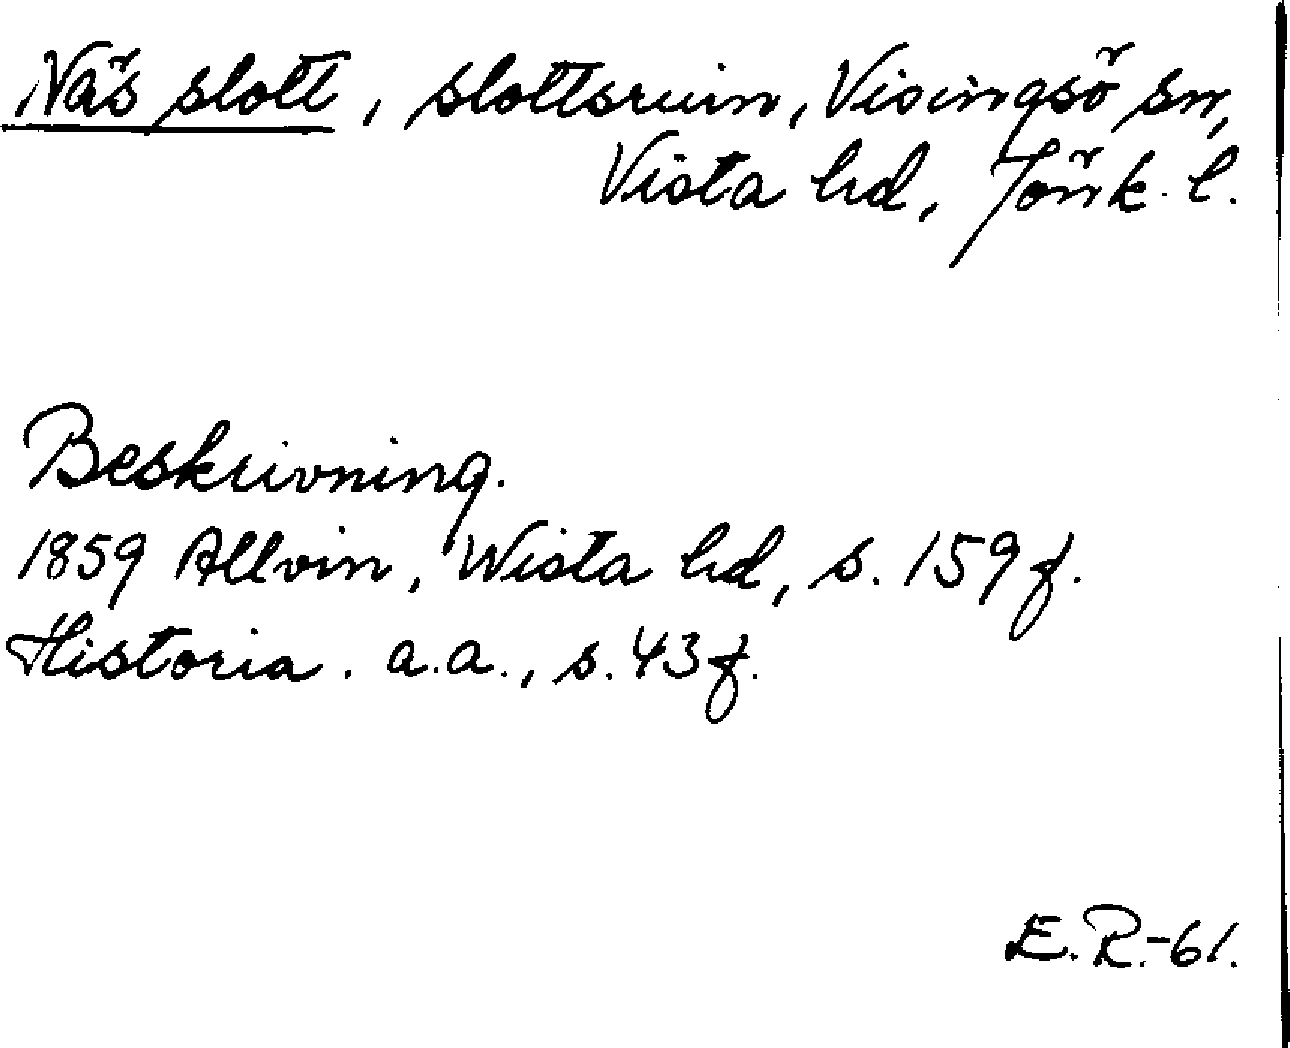 Näs slott, slottsruin, Visingsö sn,
Vista hd, Jönk. l.
Beskrivning.
1859 Allvin, Wista hd, s. 159 f.
Historia. a.a., s. 43 f.
E.R.-61.